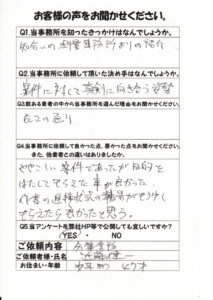 お客様の声をお聞かせください。
Q1.当事務所を知ったきっかけはなんでしょうか。
知合いの
事務所よりの紹介
Q2.当事務所に依頼して頂いた決め手はなんでしょうか。
案件に対して真剣に向き合う姿勢
Q3.数ある業者の中から当事務所を選んだ理由をお聞かせください。
Q2の通り
Q4.当事務所に依頼して良かった点、悪かった点をお聞かせください。
また、他業者との違いはありましたか。
ややこしい案件であったが目的を
はたしてもらえた事が良かった。
作業の進捗状況の報告がもう少し
もらえたら良かったと思う。
Q5.当アンケートを弊社HP等で公開しても宜しいですか?
YES ・ NO
ご依頼内容
ご依頼者様・氏名
お住まい・年齢
47才